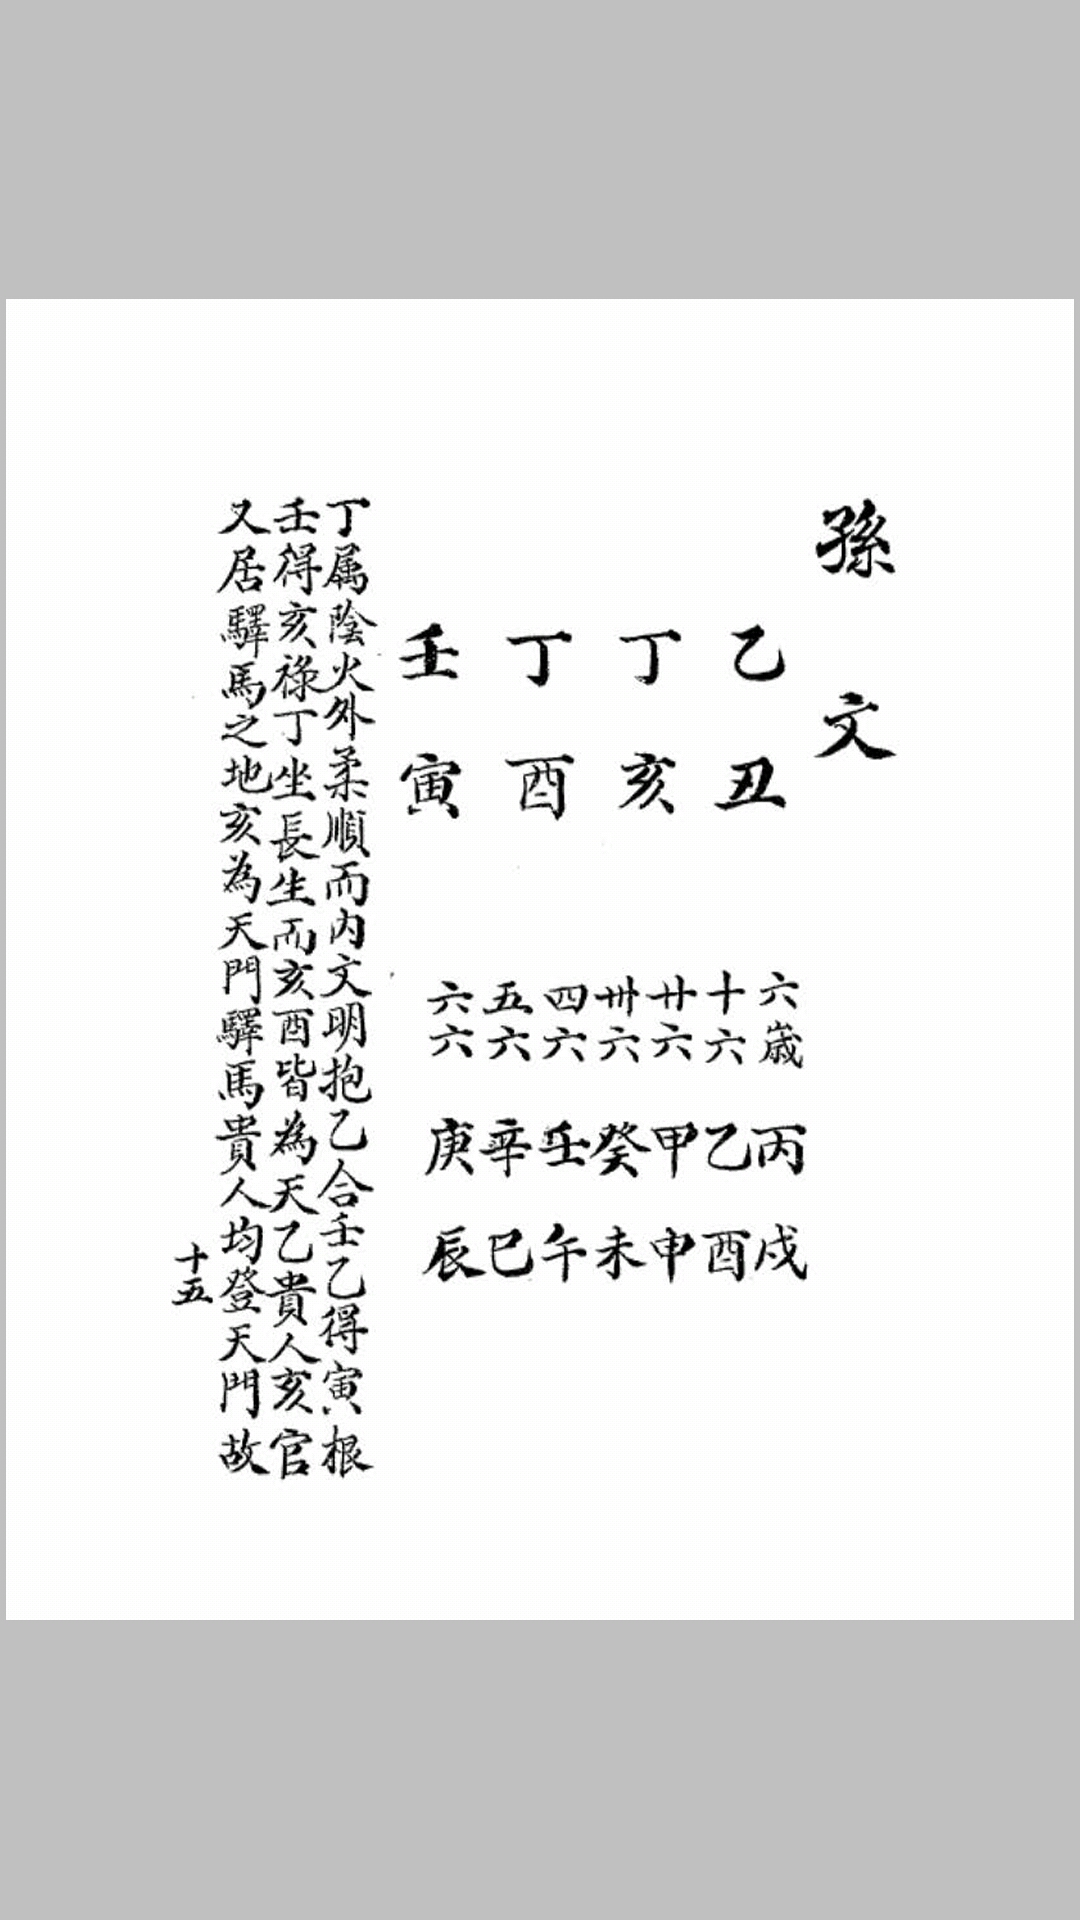 孫文
乙丑
丁亥
丁酉
壬寅
六歲丙戌
十六乙酉
廿六甲申
卅六癸未
四六壬午
五六辛巳
六六庚辰
丁属陰火外柔順而内文明抱乙合壬乙得寅根
壬得亥祿丁坐長生而亥酉皆為天乙貴人亥官
又居驛馬之地亥為天門驛馬貴人均登天門故
十五